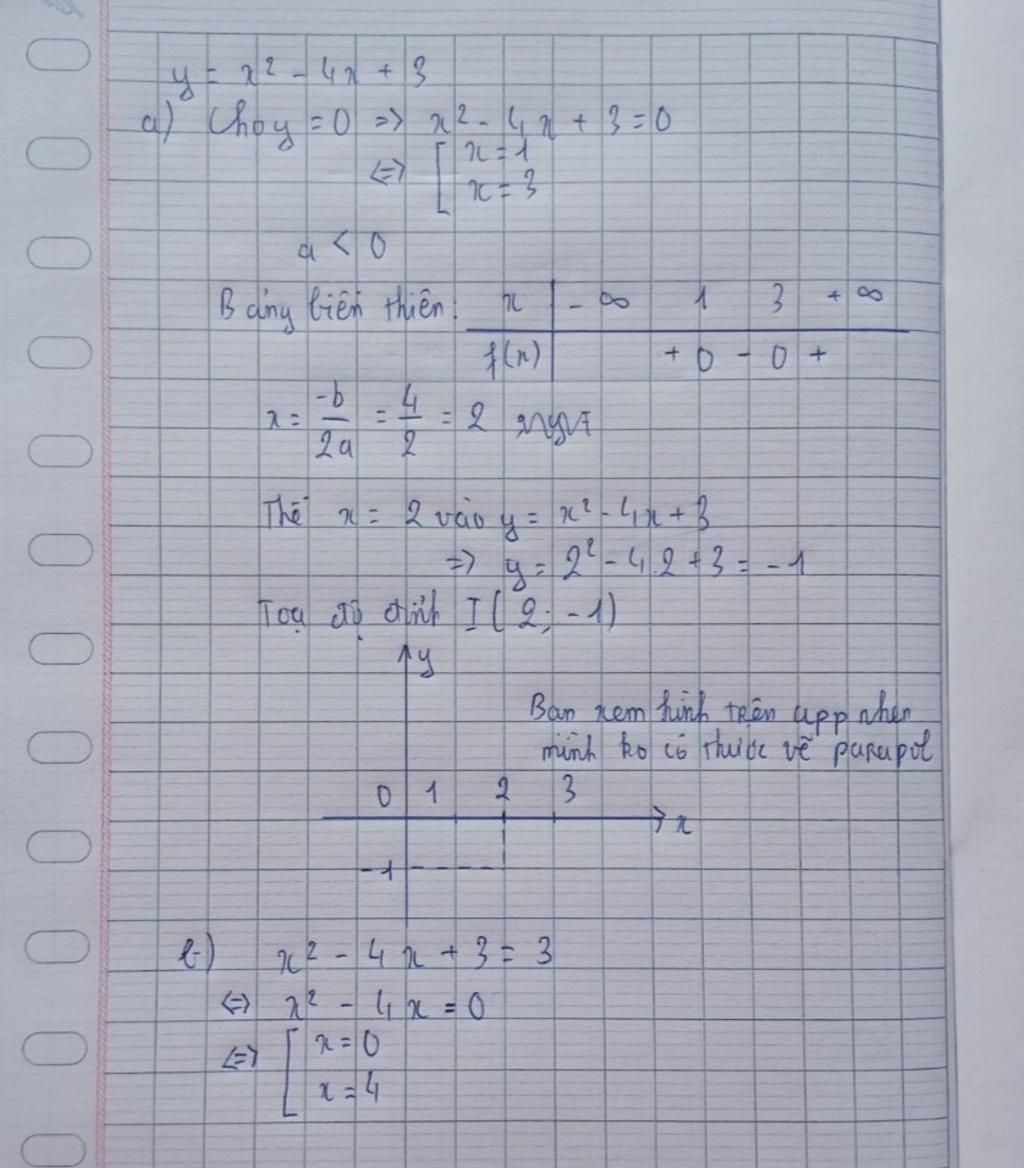 y = x² - 4x + 3
a) Cho y = 0 => x² - 4x + 3 = 0
<=> [ x = 1
x = 3
a < 0
Bảng biến thiên: x | - ∞ 1 3 + ∞
f(x) | + 0 - 0 +
x = -b/2a = 4/2 = 2
Thế x = 2 vào y = x² - 4x + 3
=> y = 2² - 4.2 + 3 = - 1
Toạ độ đỉnh I ( 2; - 1)
y
Bạn xem hình trên app nhen
mình ko có thước vẽ parapol
0 1 2 3
x
-1
b) x² - 4x + 3 = 3
<=> x² - 4x = 0
<=> [ x = 0
x = 4